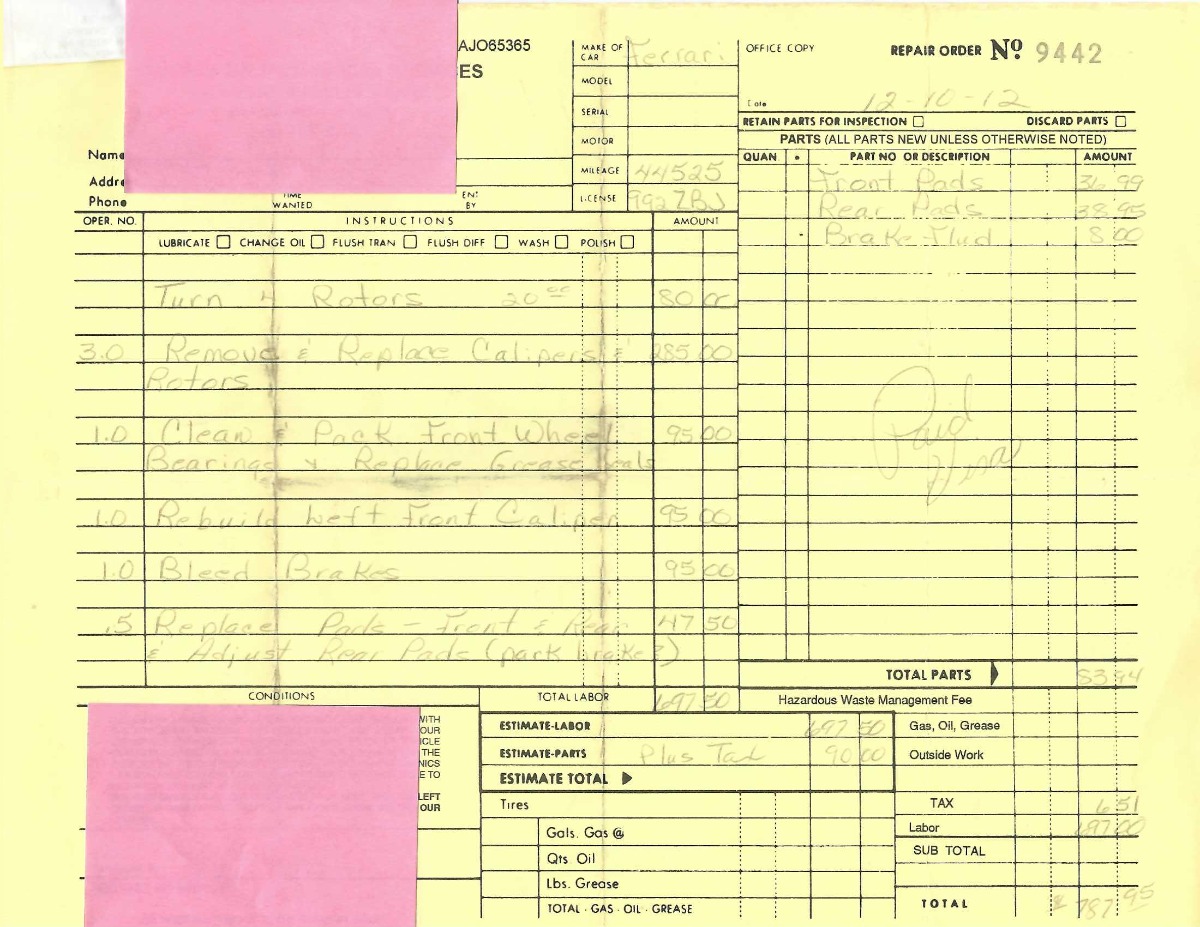 AJO65365
ES
MAKE OF CAR Ferrari
MODEL
SERIAL
MOTOR
MILEAGE 44525
LICENSE 992 ZBJ
OFFICE COPY
REPAIR ORDER No 9442
Date 12-10-12
RETAIN PARTS FOR INSPECTION DISCARD PARTS
PARTS (ALL PARTS NEW UNLESS OTHERWISE NOTED)
QUAN. PART NO OR DESCRIPTION AMOUNT
Front Pads 36 99
Rear Pads 38 95
Brake Flud 8 00
Paid
Visa
TOTAL PARTS 83 94
Name
Addre
Phone
TIME WANTED
ENT BY
OPER. NO. INSTRUCTIONS AMOUNT
LUBRICATE CHANGE OIL FLUSH TRAN FLUSH DIFF WASH POLISH
Turn 4 Rotors 20 00 80 00
3.0 Remove & Replace Calipers & 285 00
Rotors
1.0 Clean & Pack Front Wheel 95 00
Bearings & Replace Grease Seals
1.0 Rebuild Left Front Caliper 95 00
1.0 Bleed Brakes 95 00
.5 Replace Pads - Front & Rear 47 50
& Adjust Rear Pads (park brake)
CONDITIONS
WITH
OUR
ICLE
THE
NICS
E TO
LEFT
OUR
TOTAL LABOR 697 50
ESTIMATE-LABOR 697 50
ESTIMATE-PARTS Plus Tax 90 00
ESTIMATE TOTAL
Tires
Gals. Gas @
Qts. Oil
Lbs. Grease
TOTAL - GAS - OIL - GREASE
Hazardous Waste Management Fee
Gas, Oil, Grease
Outside Work
TAX 6 51
Labor 697 00
SUB TOTAL
TOTAL $ 787 95